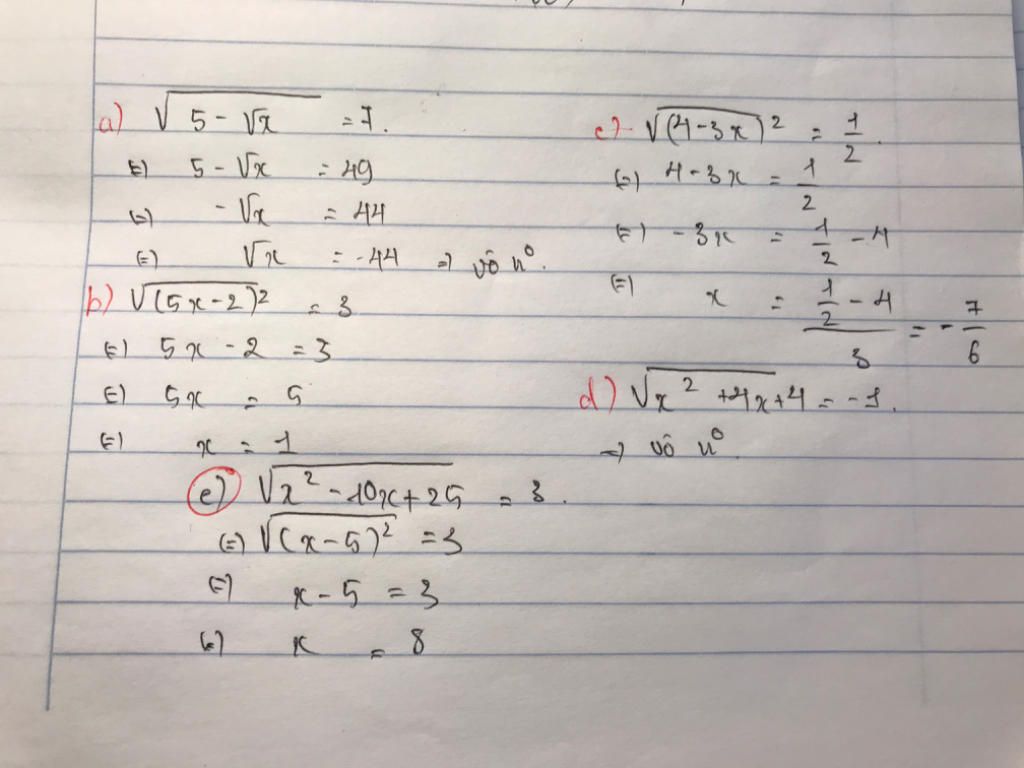 a) √(5 - √x) = 7.
⇔) 5 - √x = 49
⇔) - √x = 44
⇔) √x = -44 ⇒ vô n⁰.
b) √(5x - 2)² = 3
⇔) 5x - 2 = 3
⇔) 5x = 5
⇔) x = 1
c) √(4 - 3x)² = 1/2.
⇔) 4 - 3x = 1/2
⇔) - 3x = 1/2 - 4
⇔) x = (1/2 - 4)/3 = - 7/6
d) √x² + 4x + 4 = -1.
⇒ vô n⁰
e) √x² - 10x + 25 = 3.
⇔) √(x - 5)² = 3
⇔) x - 5 = 3
⇔) x = 8